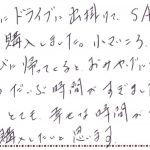 にドライブに出掛けて、SA
購入しました。小さいころ、
に帰ってくるとおみやげに
だいぶ時間がすぎました
とても、幸せな時間が
購入したいと思います